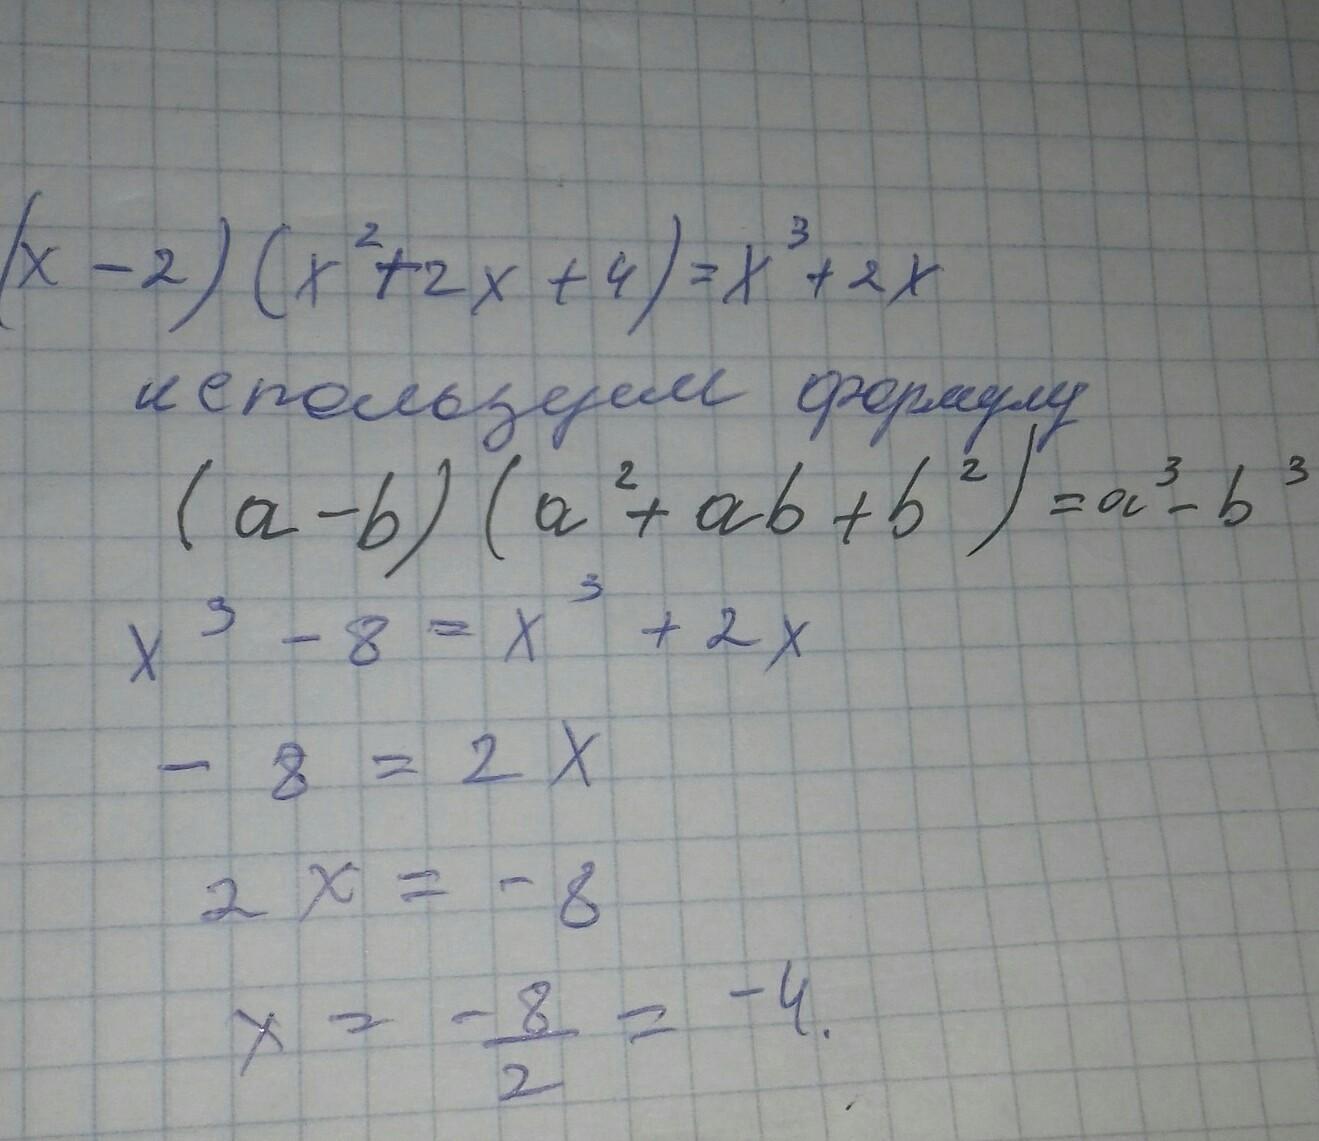 (x - 2) (x² + 2x + 4) = x³ + 2x
используем формулу
(a - b) (a² + ab + b²) = a³ - b³
x³ - 8 = x³ + 2x
- 8 = 2x
2x = - 8
x = - 8/2 = -4.